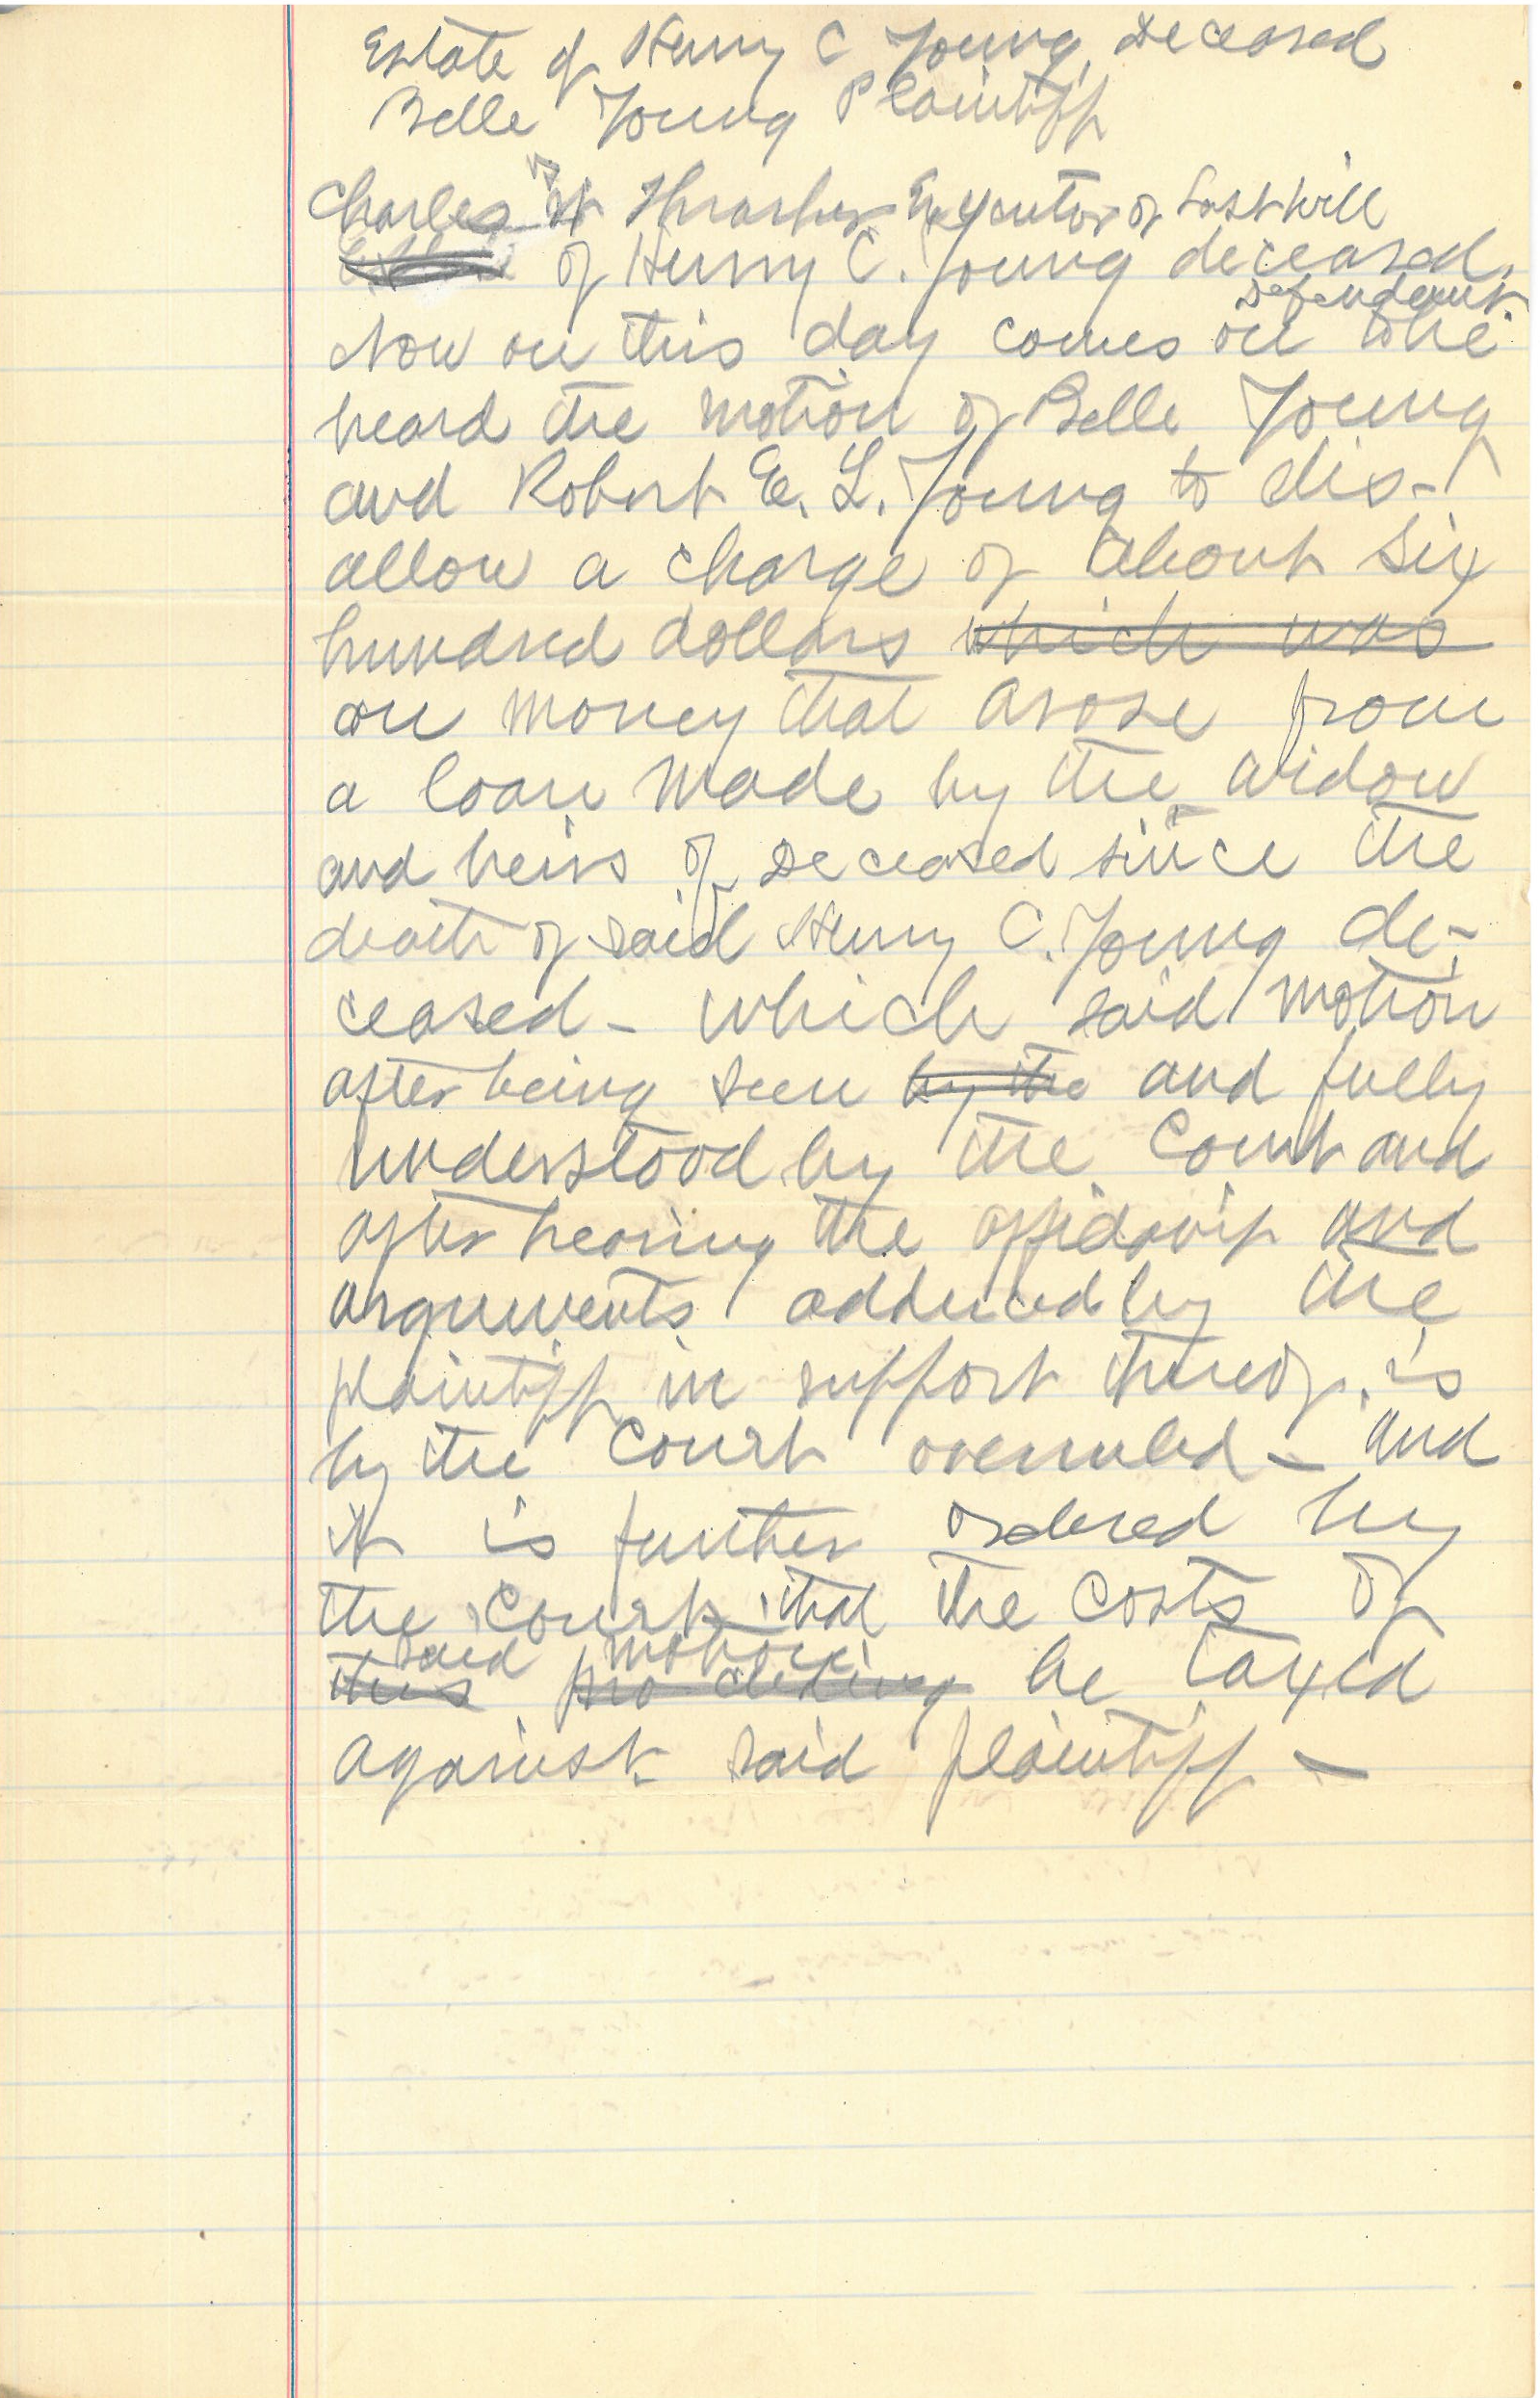 Estate of Henry C Young, Deceased
Belle Young Plaintiff
vs
Charles H Thrasher Executor of Last Will
of Henry C. Young deceased,
Defendant.
Now on this day comes on to be
heard the motion of Belle Young
and Robert E. L. Young to dis-
allow a charge of about six
hundred dollars which was
on money that arose from
a loan made by the widow
and heirs of Deceased since the
death of said Henry C. Young de-
ceased - which said motion
after being seen by the and fully
understood by the Court and
after hearing the affidavit and
arguments adduced by the
plaintiff in support thereof, is
by the Court overruled - and
it is further ordered by
the Court that the costs of
said motion
this proceeding be taxed
against said plaintiff -